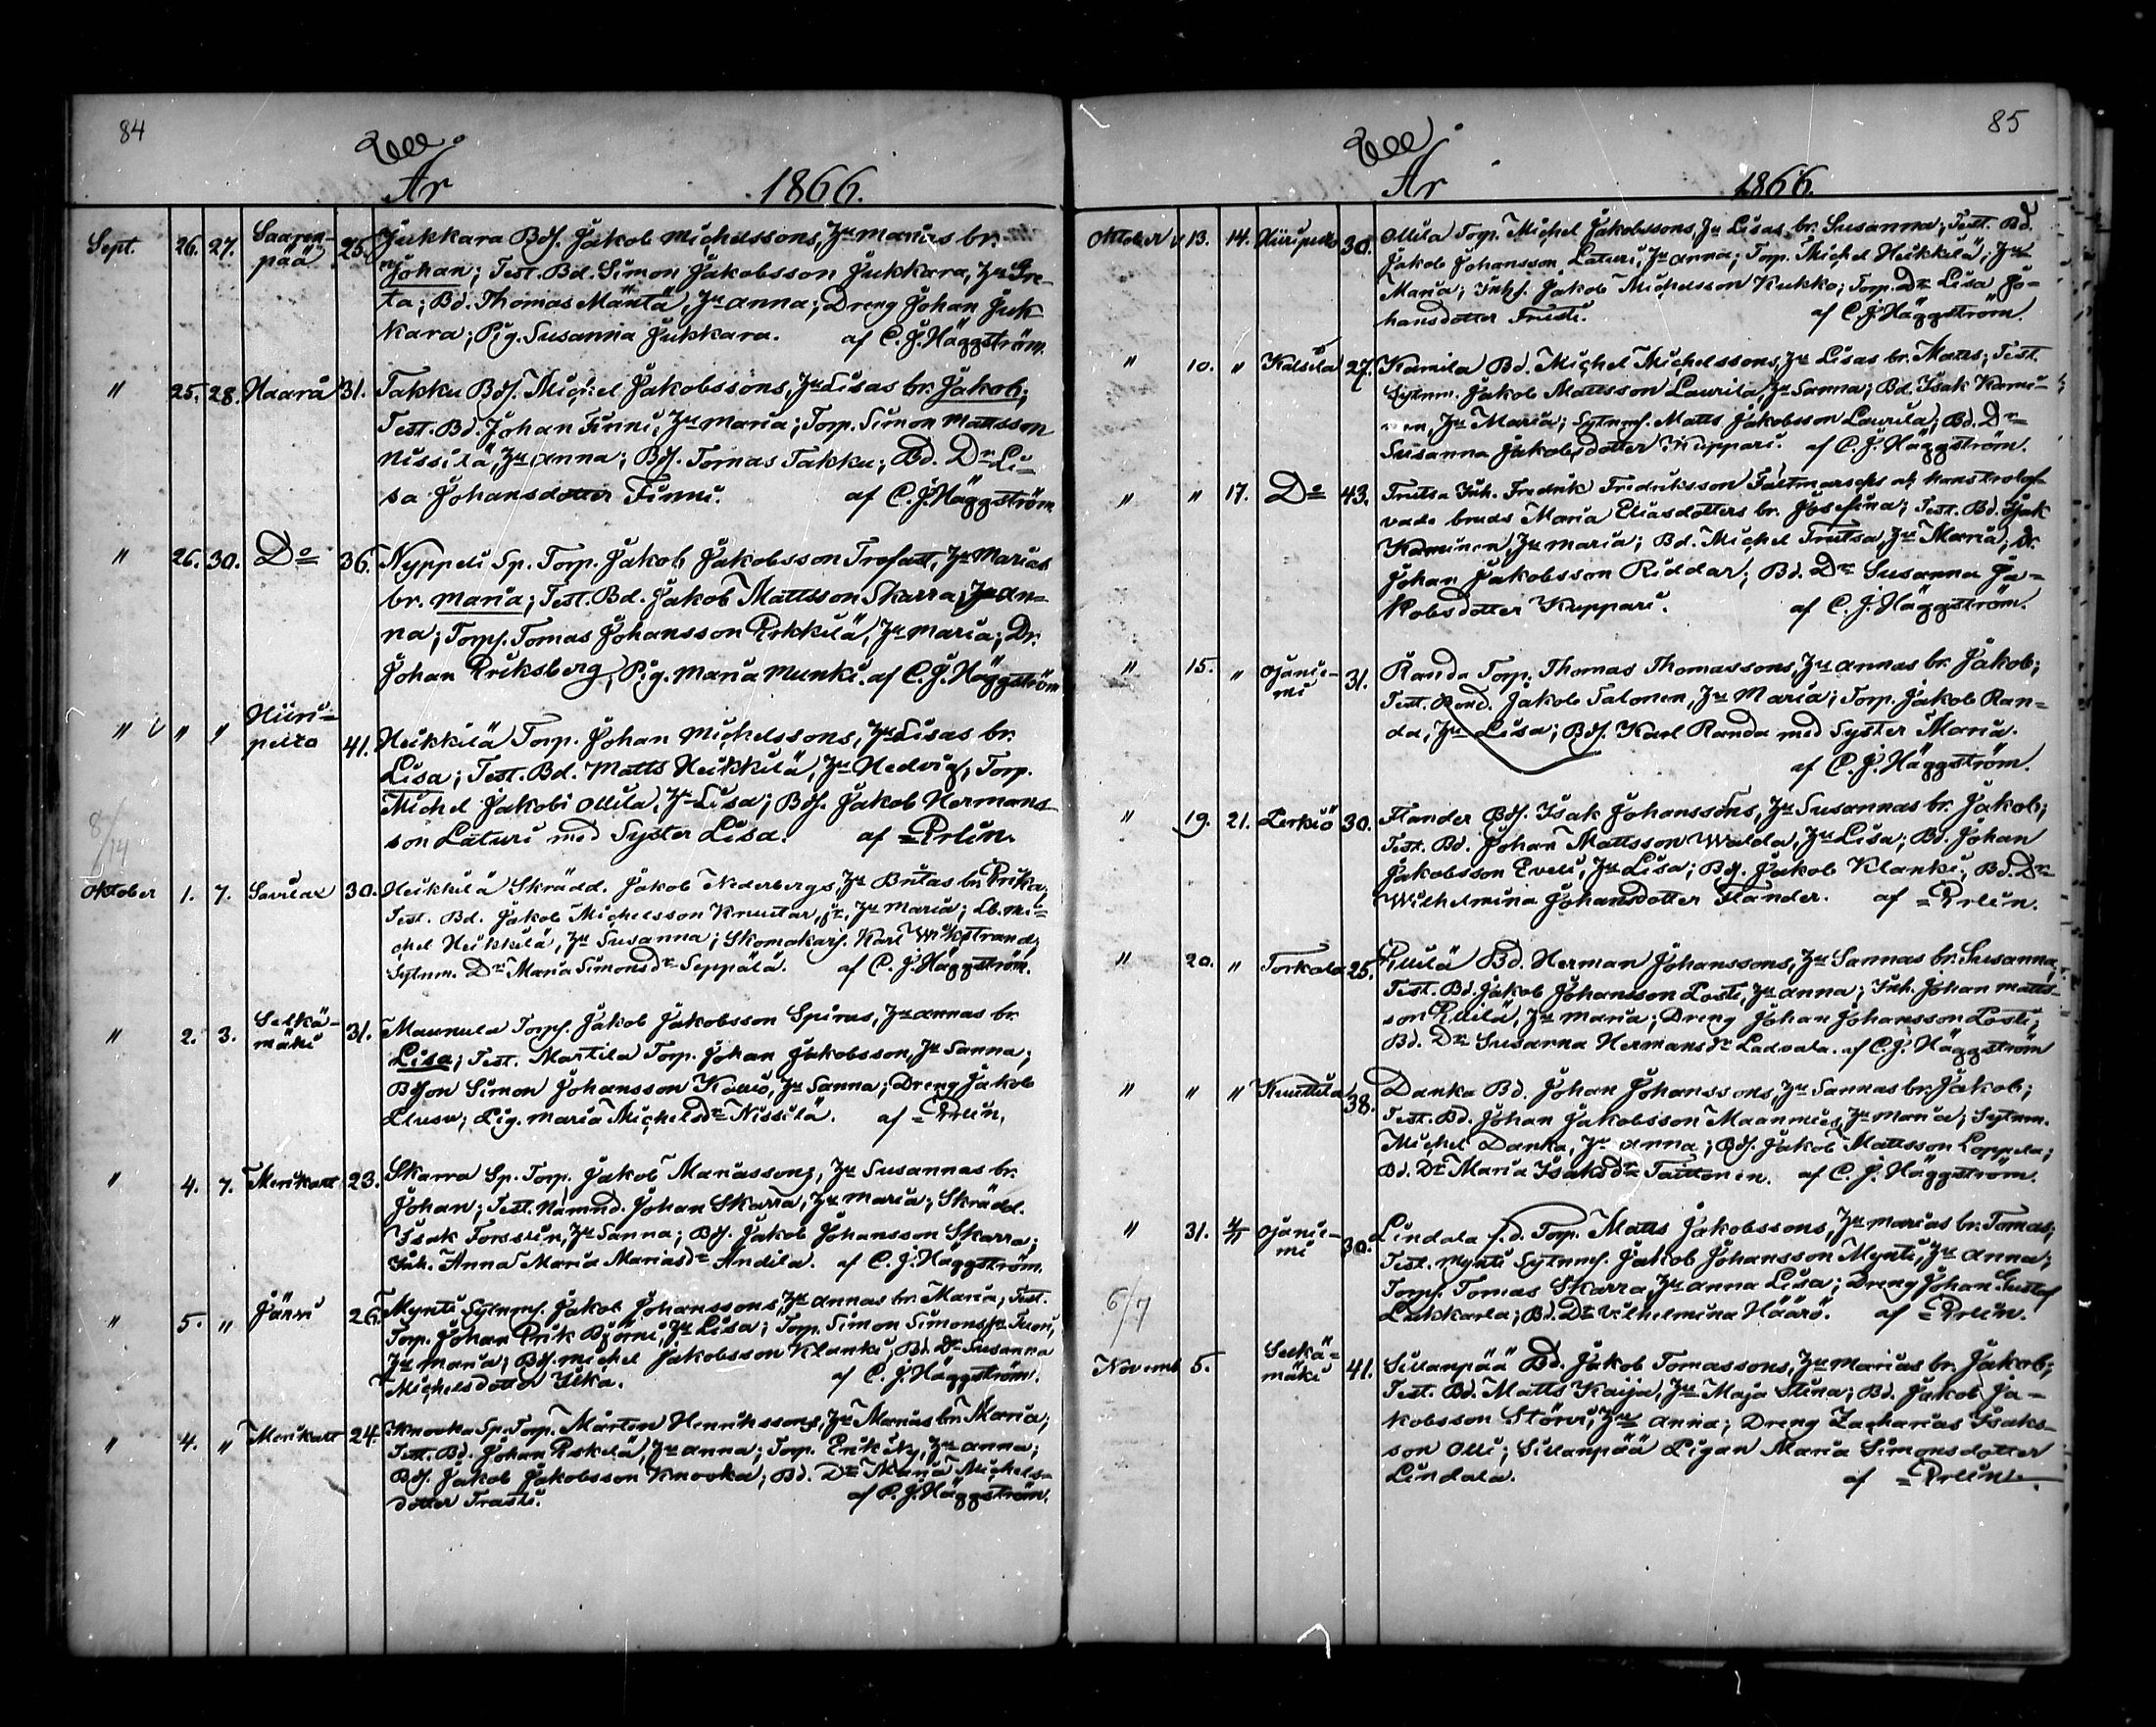 84
År 1866.
Sept. 26. 27. Saaren- 25. Jukkara Bdf. Jakob Michelssons, Hu Marias br.
pää Johan; Test. Bd. Simon Jakobsson Jukkara, Hu Gre-
ta; Bd. Thomas Mäntä, Hu Anna; Dreng Johan Juk-
kara; Pig. Susanna Jukkara. af C. J. Häggström.
" 25. 28. Haarå 31. Takku Bdf. Michel Jakobssons, Hu Lisas br. Jakob;
Test. Bd. Johan Finni, Hu Maria; Torp. Simon Mattsson
Nissilä, Hu Anna; Bdf. Tomas Takku; Bd. Dr Li-
sa Johansdotter Finni. af C. J. Häggström
" 26. 30. Do 36. Nyppeli Sp. Torp. Jakob Jakobsson Trofast, Hu Marias
br. Maria; Test. Bd. Jakob Mattsson Skarra, Hu An-
na; Torpf. Tomas Johansson Erkkilä, Hu Maria; Dr.
Johan Eriksberg, Pig. Maria Munki. af C. J. Häggström
" v " " Hiiri-
pelto 41. Heikkilä Torp. Johan Michelssons, Hu Lisas br.
Lisa; Test. Bd. Matts Heikkilä, Hu Hedvig; Torp.
Michel Jakobi Ollila, Hu Lisa; Bdf. Jakob Hermans-
son Laturi med Syster Lisa. af Erlin.
8/14
Oktober 1. 7. Savilax 30. Heikkilä Skrädd. Jakob Nederbergs, Hu Britas br. Erika;
Test. Bd. Jakob Michelsson Knuutar, Hu Maria; Lb. Mi-
chel Heikkilä, Hu Susanna; Skomakarf. Karl Wikstrand;
Sytnm. Dr Maria Simonsdr Seppälä. af C. J. Häggström.
" 2. 3. Selkä- 31. Maunula Torpf. Jakob Jakobsson Spiras, Hu Annas br.
mäki Lisa; Test. Martila Torp. Johan Jakobsson, Hu Sanna;
Bdson Simon Johansson Kovio, Hu Sanna; Dreng Jakob
Pig. Maria Michelsdr Nissilä. af Erlin.
" 4. 7. Merikart 23. Skarra Sp. Torp. Jakob Mariassons, Hu Susannas br.
Johan; Test. Nämnd. Johan Skarra, Hu Maria; Skrädd.
Isak Forssén, Hu Sanna; Bdf. Jakob Johansson Skarra;
Inh. Anna Maria Mariasdr Andila. af C. J. Häggström.
" 5. " Järvi 26. Mynti Sytnmf. Jakob Johanssons, Hu Annas br. Maria; Test.
Torp. Johan Erik Björni, Hu Lisa; Torp. Simon Simonss.
Hu Maria; Bdf. Michel Jakobsson Klanki; Bd. Dr Susanna
Michelsdotter Ilka. af C. J. Häggström.
" 4. " Merikart 24. Knooka Sp. Torp. Mårten Henrikssons, Hu Marias br. Maria;
Test. Bd. Johan Erkkilä, Hu Anna; Torp. Erik Ny, Hu Anna;
Bdf. Jakob Jakobsson Knooka; Bd. Dr Maria Michels-
dotter Trasti. af C. J. Häggström.
85
År 1866.
Oktober v 13. 14. Hiiripelto 30. Ollila Torp. Michel Jakobssons, Hu Lisas br. Susanna; Test. Bd.
Jakob Johansson Laturi, Hu Anna; Torp. Michel Heikkilä, Hu
Maria; Inhf. Jakob Michelsson Kukko; Torp. Dr Lisa Jo-
hansdotter af C. J. Häggström.
" 10. " Kalsila 27. Kamila Bd. Michel Michelssons, Hu Lisas br. Matts; Test.
Sytnm. Jakob Mattsson Laurila, Hu Sanna; Bd. Isak Kami-
nen, Hu Maria; Sytnmf. Matts Jakobsson Laurila; Bd. Dr
Susanna Jakobsdotter Kuppari. af C. J. Häggström.
" " 17. Do 43. Trutsa Inh. Fredrik Fredriksson
vade bruds Maria Eliasdotters br. Josefina; Test. Bd. Isak
Kaminen, Hu Maria; Bd. Michel Trutsa, Hu Maria; Dr.
Johan Jakobsson Riddar; Bd. Dr Susanna Ja-
kobsdotter Kuppari. af C. J. Häggström.
" 15. " Ojanie- 31. Randa Torp. Thomas Thomassons, Hu Annas br. Jakob;
mi Test. Bond. Jakob Salonen, Hu Maria; Torp. Jakob Ran-
da, Hu Lisa; Bdf. Karl Randa med Syster Maria.
af C. J. Häggström.
" 19. 21. Perkiö 30. Flander Bdf. Isak Johanssons, Hu Susannas br. Jakob;
Test. Bd. Johan Mattsson Walda, Hu Lisa; Bd. Johan
Jakobsson Eveli, Hu Lisa; Bdf. Jakob Klanki; Bd. Dr
Wilhelmina Johansdotter Flander. af Erlin.
" 20. " Torkola 25. Pillilä Bd. Herman Johanssons, Hu Sannas br. Susanna;
Test. Bd. Jakob Johansson Posti, Hu Anna; Inh. Johan Matts-
son Pillilä, Hu Maria; Dreng Johan Johansson Posti;
Bd. Dr Susanna Hermansdr Ladvala. af C. J. Häggström
" " " Knuuttila 38. Danka Bd. Johan Johanssons, Hu Sannas br. Jakob;
Test. Bd. Johan Jakobsson Maanmies, Hu Maria; Sytnm.
Michel Danka, Hu Anna; Bdf. Jakob Mattsson Loppela;
Bd. Dr Maria Isaksdr Taittonen. af C. J. Häggström.
" 31. 4/11 Ojanie-
mi 30. Lindala f.d. Torp. Matts Jakobssons, Hu Marias br. Tomas;
Test. Mynti Sytnmf. Jakob Johansson Mynti, Hu Anna;
Torpf. Tomas Skarra, Hu Anna Lisa; Dreng Johan Gustaf
Lukkarla; Bd. Dr Vilhelmina Häärö. af Erlin.
6/7
Novemb. 5. Selkä- 41. Sillanpää Bd. Jakob Tomassons, Hu Marias br. Jakob;
mäki Test. Bd. Matts Kaija, Hu Maja Stina; Bd. Jakob Ja-
kobsson Störri, Hu Anna; Dreng Zacharias Isaks-
son Olli; Sillanpää Pigan Maria Simonsdotter
Lindala. af Erlin.